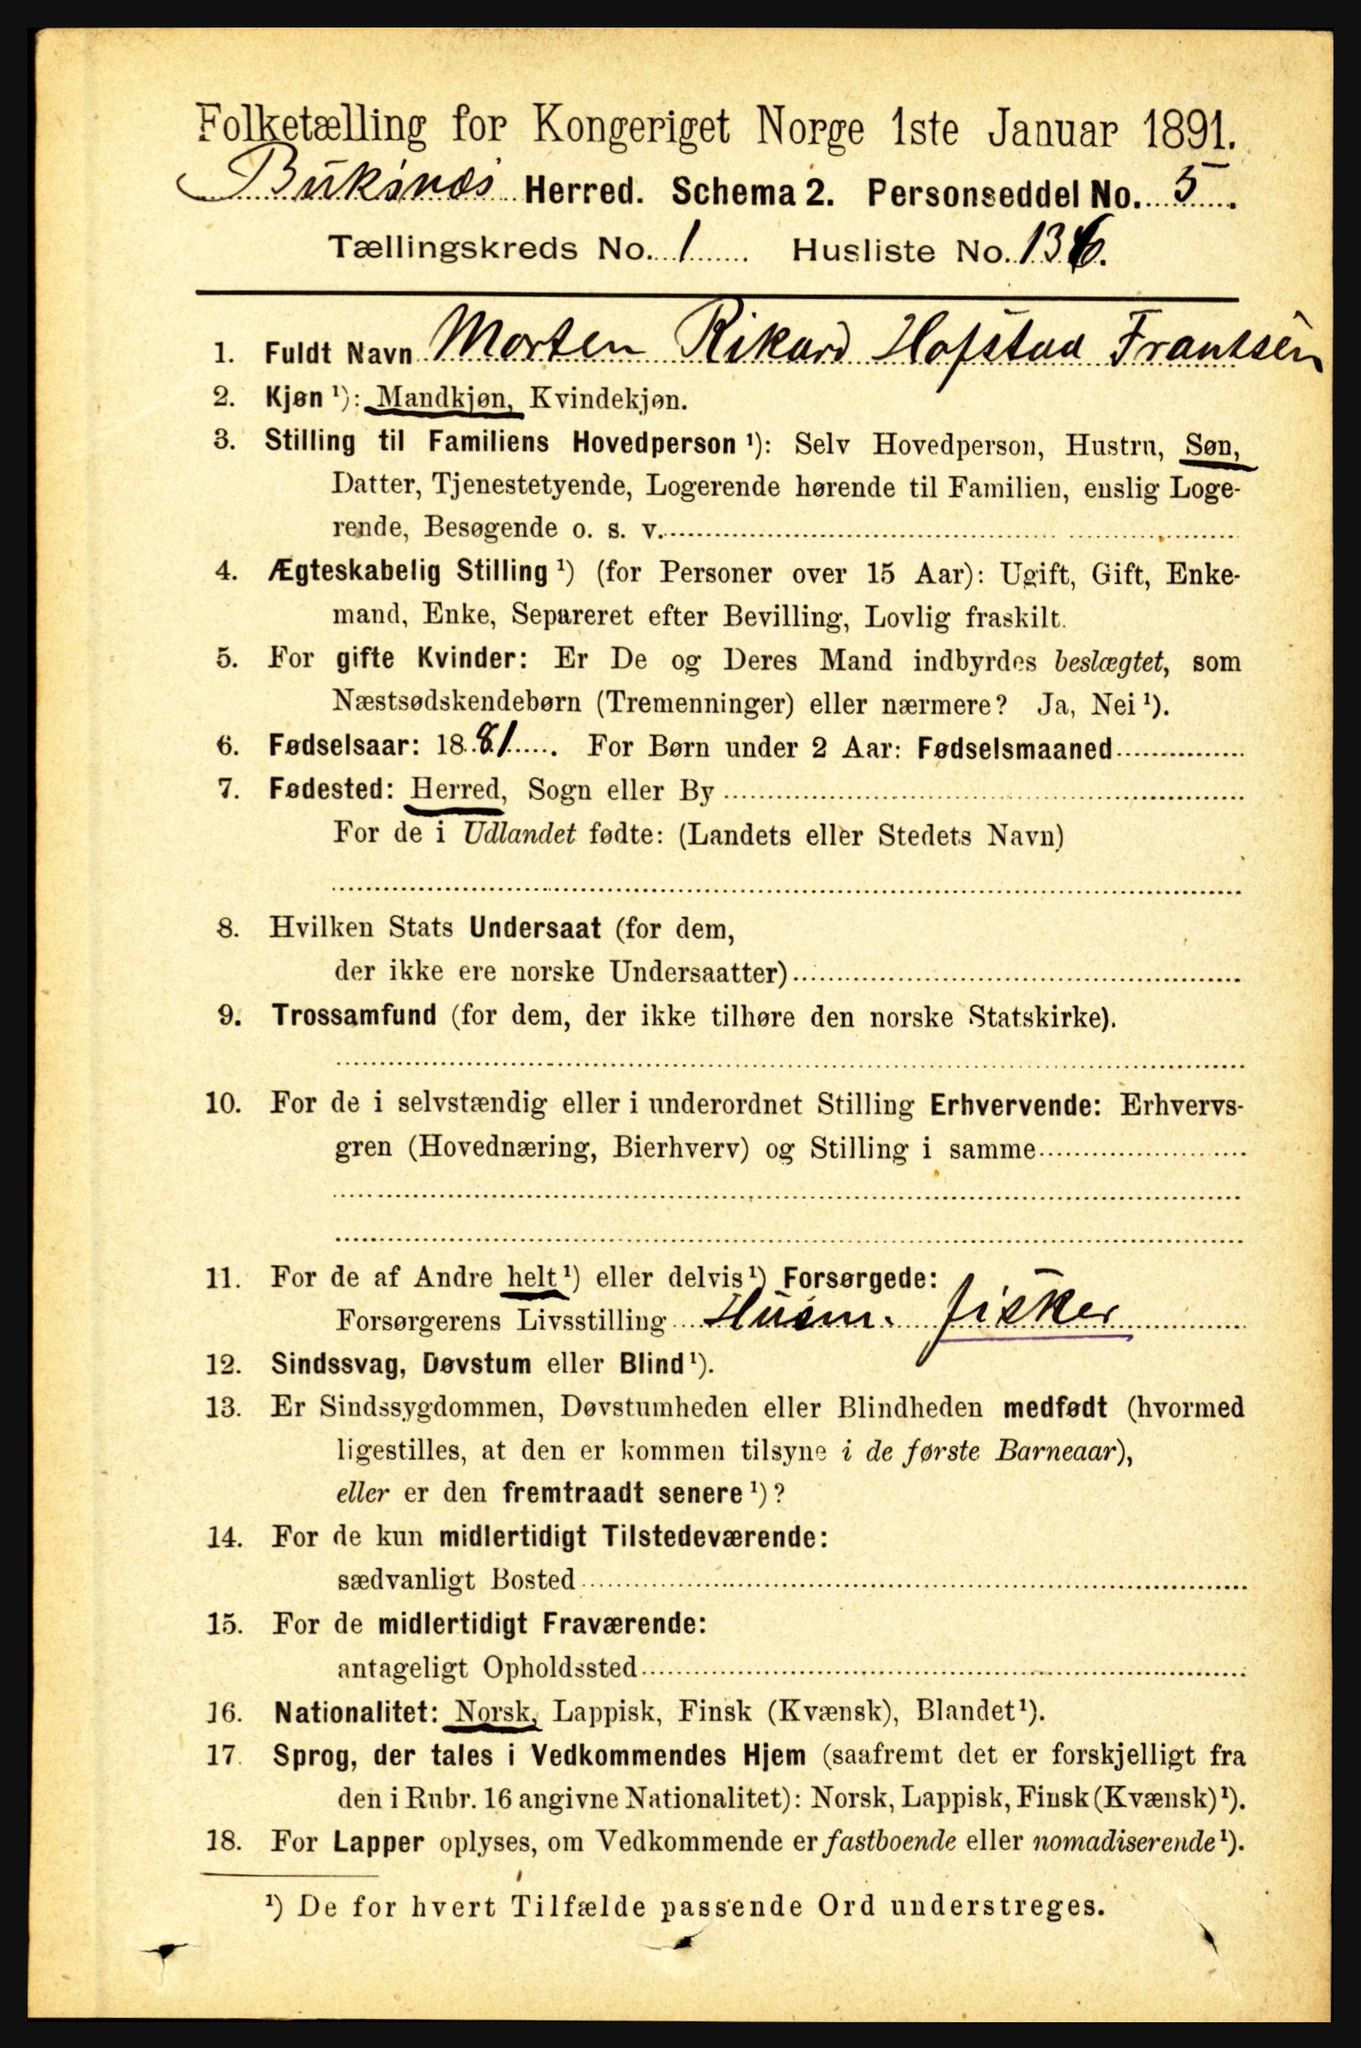 Folketælling for Kongeriget Norge 1ste Januar 1891.
Buksnæs Herred. Schema 2. Personseddel No. 5.
Tællingskreds No. 1 Husliste No. 136.
1. Fuldt Navn Morten Rikard Hofstad Frantsen
2. Kjøn ¹): Mandkjøn, Kvindekjøn.
3. Stilling til Familiens Hovedperson ¹): Selv Hovedperson, Hustru, Søn,
Datter, Tjenestetyende, Logerende hørende til Familien, enslig Loge-
rende, Besøgende o. s. v.
4. Ægteskabelig Stilling ¹) (for Personer over 15 Aar): Ugift, Gift, Enke-
mand, Enke, Separeret efter Bevilling, Lovlig fraskilt.
5. For gifte Kvinder: Er De og Deres Mand indbyrdes beslægtet, som
Næstsødskendebørn (Tremenninger) eller nærmere? Ja, Nei ¹).
6. Fødselsaar: 1881. For Børn under 2 Aar: Fødselsmaaned
7. Fødested: Herred, Sogn eller By
For de i Udlandet fødte: (Landets eller Stedets Navn)
8. Hvilken Stats Undersaat (for dem,
der ikke ere norske Undersaatter)
9. Trossamfund (for dem, der ikke tilhøre den norske Statskirke).
10. For de i selvstændig eller i underordnet Stilling Erhvervende: Erhvervs-
gren (Hovednæring, Bierhverv) og Stilling i samme
11. For de af Andre helt ¹) eller delvis ¹) Forsørgede:
Forsørgerens Livsstilling Husm. fisker
12. Sindssvag, Døvstum eller Blind ¹).
13. Er Sindssygdommen, Døvstumheden eller Blindheden medfødt (hvormed
ligestilles, at den er kommen tilsyne i de første Barneaar),
eller er den fremtraadt senere ¹)?
14. For de kun midlertidigt Tilstedeværende:
sædvanligt Bosted
15. For de midlertidigt Fraværende:
antageligt Opholdssted
16. Nationalitet: Norsk, Lappisk, Finsk (Kvænsk), Blandet ¹).
17 Sprog, der tales i Vedkommendes Hjem (saafremt det er forskjelligt fra
den i Rubr. 16 angivne Nationalitet): Norsk, Lappisk, Finsk (Kvænsk) ¹).
18. For Lapper oplyses, om Vedkommende er fastboende eller nomadiserende ¹).
¹) De for hvert Tilfælde passende Ord understreges.